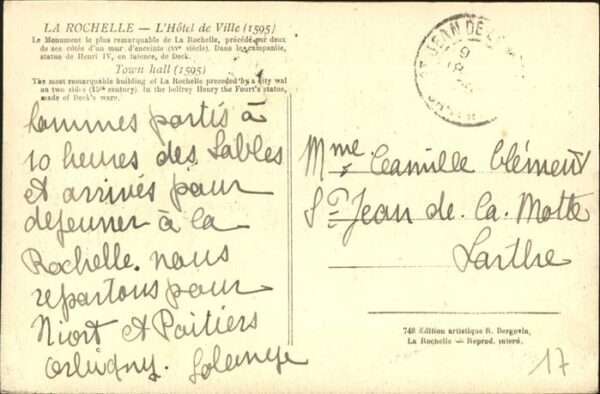 LA ROCHELLE — L'Hôtel de Ville (1595)
Le Monument le plus remarquable de La Rochelle, précédé sur deux
de ses côtés d'un mur d'enceinte (XVe siècle). Dans le campanile,
statue de Henri IV, en faïence, de Deck.
Town hall (1595)
The most remarkable building of La Rochelle preceded by a city wal
on two sides (15th century). In the belfrey Henry the Fourt's statue,
made of Deck's ware.
sommes partis à
10 heures des Sables
et arrivés pour
dejeuner à la
Rochelle. nous
repartons pour
Niort et Poitiers
Solange
JEAN DE
Mme Camille Clément
St Jean de la Motte
Sarthe
748 Edition artistique R. Bergevin,
La Rochelle — Reprod. interd.
17